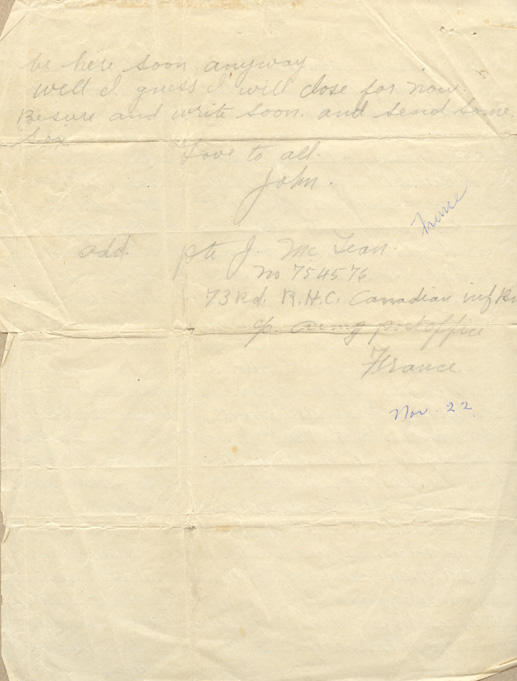 be here soon anyway
well I guess I will close for now.
Be sure and write soon. and send some
Love to all.
John.
France
add. pte J. McLean.
no 754576
73rd. R.H.C. Canadian inf
c/o army post office
France
Nov. 22